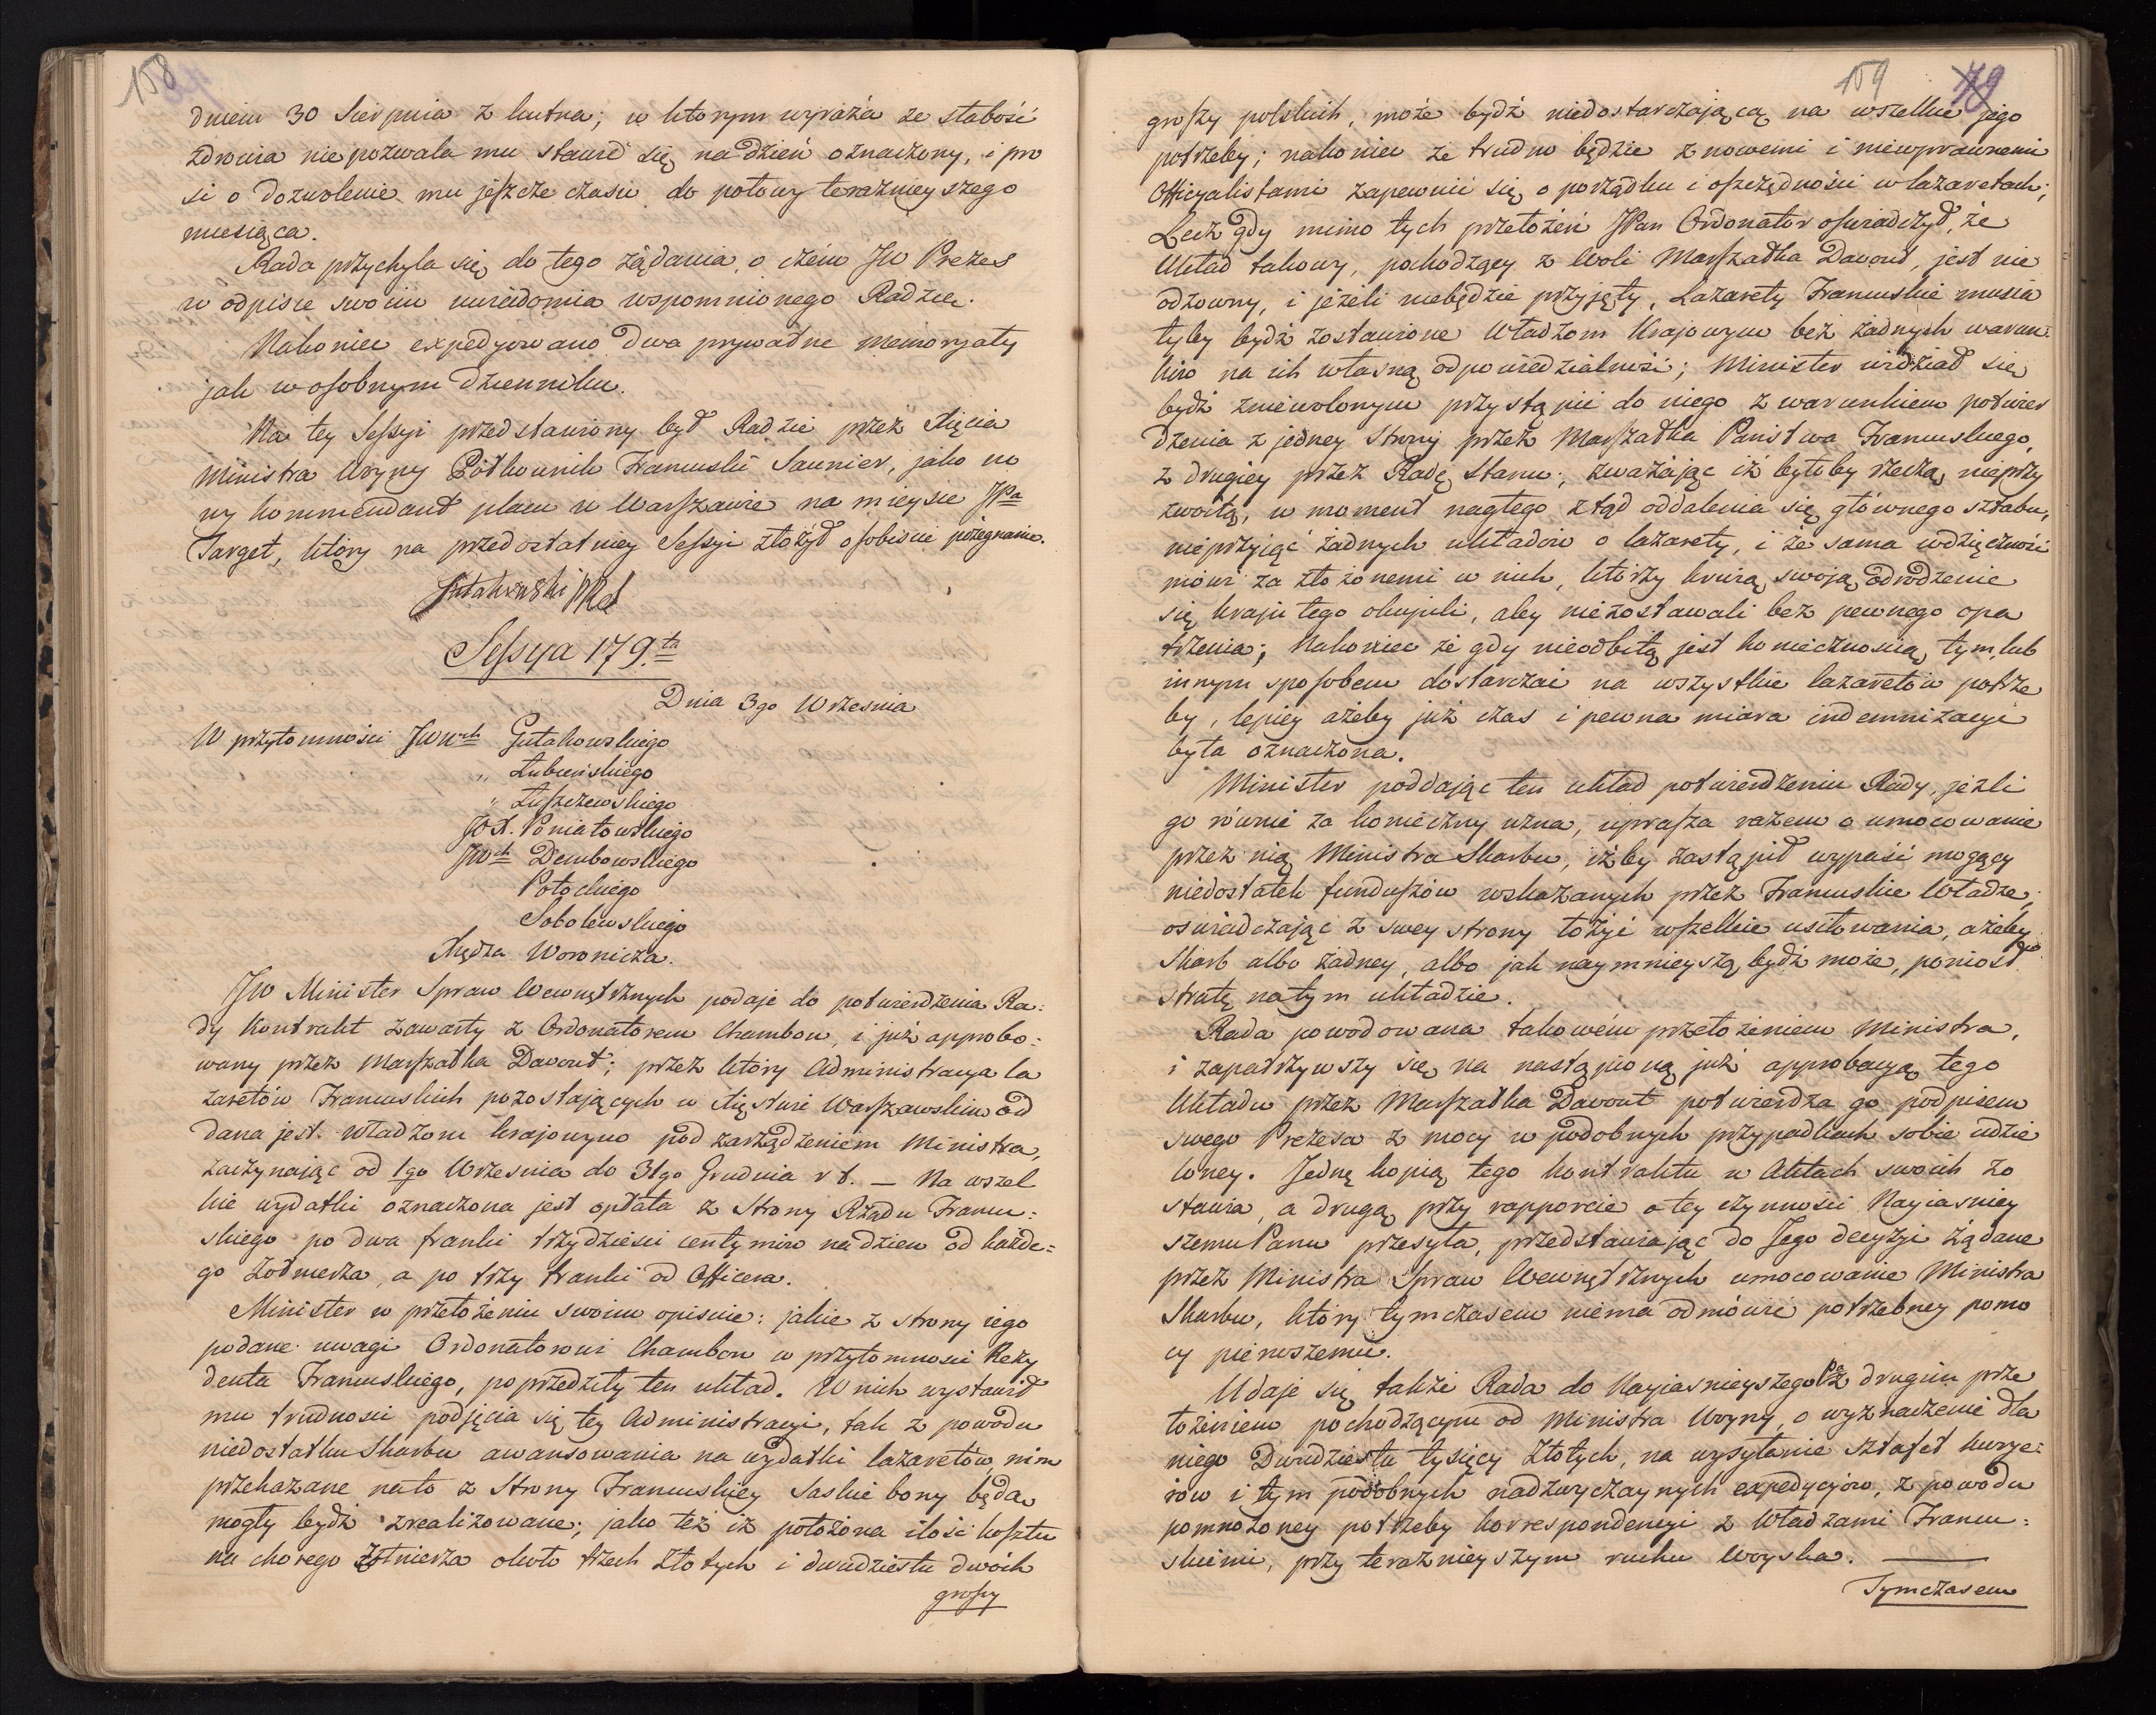 158
dniem 30 Sierpnia z Kutna; w którym wyraża że słabość
zdrowia niepozwala mu stawić się na dzień oznaczony, i pro
si o dozwolenie mu jeszcze czasu do połowy teraznieyszego
miesiąca.
Rada przychyla się do tego żądania, o czém JW Prezes
w odpisie swoim uwiédomia wspomnionego Radzcę.
Nakoniec expedyowano dwa prywatne memoryały
jak w osobnym dzienniku.
Na tey Sessyi przedstawiony był Radzie przez Xięcia
Ministra Woyny Półkownik Francuski Saunier, jako no
wy kommendant placu w Warszawie na mieysce JPa
Target, który na przedostatniey Sessyi złożył osobiście pożegnanie.
Gutakowski PRS
Sessya 179.ta
Dnia 3go Września
W przytomności JWWch Gutakowskiego
„ Łubieńskiego
„ Łuszczewskiego
JOX. Poniatowskiego
JWch Dembowskiego
Potockiego
Sobolewskiego
Xiędza Woronicza.
JW Minister Spraw Wewnętrznych podaje do potwierdzenia Ra:
dy Kontrakt zawarty z Ordonatorem Chambon, i już approbo:
wany przez Marszałka Davout; przez który Administracya la
zaretów Francuskich pozostających w Xięstwie Warszawskim od
dana jest Władzom krajowym pod zarządzeniem Ministra,
zaczynając od 1go Września do 31go Grudnia r b. — Na wszel
kie wydatki oznaczona jest opłata z Strony Rządu Francu:
skiego po dwa franki trzydzieści centymów na dzień od każde=
go żołnierza, a po trzy franki od Officera.
Minister w przełożeniu swoim opisuie: jakie z strony iego
podane uwagi Ordonatorowi Chambon w przytomności Rezy
denta Francuskiego, poprzedziły ten układ. W nich wystawił
mu trudności podjęcia się tey Administracyi, tak z powodu
niedostatku Skarbu awansowania na wydatki lazaretów, nim
przekazane na to z Strony Francuskiey Saskie bony będą
mogły bydź zrealizowane; jako też iż położona ilość kosztu
na chorego żołnierza około trzech złotych i dwudziestu dwóch
groszy
159
79
groszy polskich, może bydź niedostarczającą na wszelkie jego
potrzeby; nakoniec że trudno będzie z nowemi i niewprawnemi
Officyalistami zapewnić się o porządku i oszczędności w lazaretach;
Lecz gdy mimo tych przełożeń JPan Ordonator oświadczył, że
Układ takowy, pochodzący z Woli Marszałka Davout, jest nie
odzowny, i jeżeli niebędzie przyjęty, Lazarety Francuskie musia
łyby bydź zostawione Władzom Krajowym bez żadnych warun:
ków na ich własną odpowiedzialność; Minister widział się
bydź zniewolonym przystąpić do niego z warunkiem potwier
dzenia z jedney strony przez Marszałka Państwa Francuskiego,
z drugiey przez Radę Stanu; zważając iż byłoby rzeczą nieprzy
zwoitą, w moment nagłego ztąd oddalenia się głównego sztabu,
nieprzyjąć żadnych układów o lazarety, i że sama wdzięczność
mówi za złożonemi w nich, którzy krwią swoją odrodzenie
się kraju tego okupili, aby niezostawali bez pewnego opa
trzenia; Nakoniec że gdy nieodbitą jest koniecznością, tym lub
innym sposobem dostarczać na wszystkie lazaretów potrze
by, lepiey ażeby już czas i pewna miara indemnizacyi
była oznaczona.
Minister poddając ten układ potwierdzeniu Rady, jeżli
go równie za konieczny uzna, uprasza razem o umocowanie
przez nią Ministra Skarbu, iżby zastąpił wypaść mogący
niedostatek funduszów wskazanych przez Francuskie Władze,
oświadczając z swey strony łożyć wszelkie usiłowania, ażeby
Skarb albo żadney, albo jak naymnieyszą bydź może, poniosł
stratę na tym układzie.
Rada powodowana takowém przełożeniem Ministra,
i zapatrzywszy się na nastąpioną już approbacyą tego
Układu przez Marszałka Davout potwierdza go podpisem
swego Prezesa z mocy w podobnych przypadkach sobie udzie
loney. Jedną kopią tego kontraktu w Aktach swoich zo
stawia, a drugą przy rapporcie o tey czynności Nayiaśniey
szemu Panu przesyła, przedstawiając do Jego decyzyi żądane
przez Ministra Spraw Wewnętrznych umocowanie Ministra
Skarbu, który tymczasem niema odmówić potrzebney pomo
cy pierwszemu.
Udaje się także Rada do Nayiaśnieyszego Pa z drugim prze
łożeniem pochodzącym od Ministra Woyny, o wyznaczenie dla
niego Dwudziestu tysięcy Złotych, na wysyłanie sztafet kurye:
rów i tym podobnych nadzwyczaynych expedycyów, z powodu
pomnożoney potrzeby korrespondencyi z Władzami Francu:
skiemi, przy teraznieyszym ruchu Woyska. —
Tymczasem